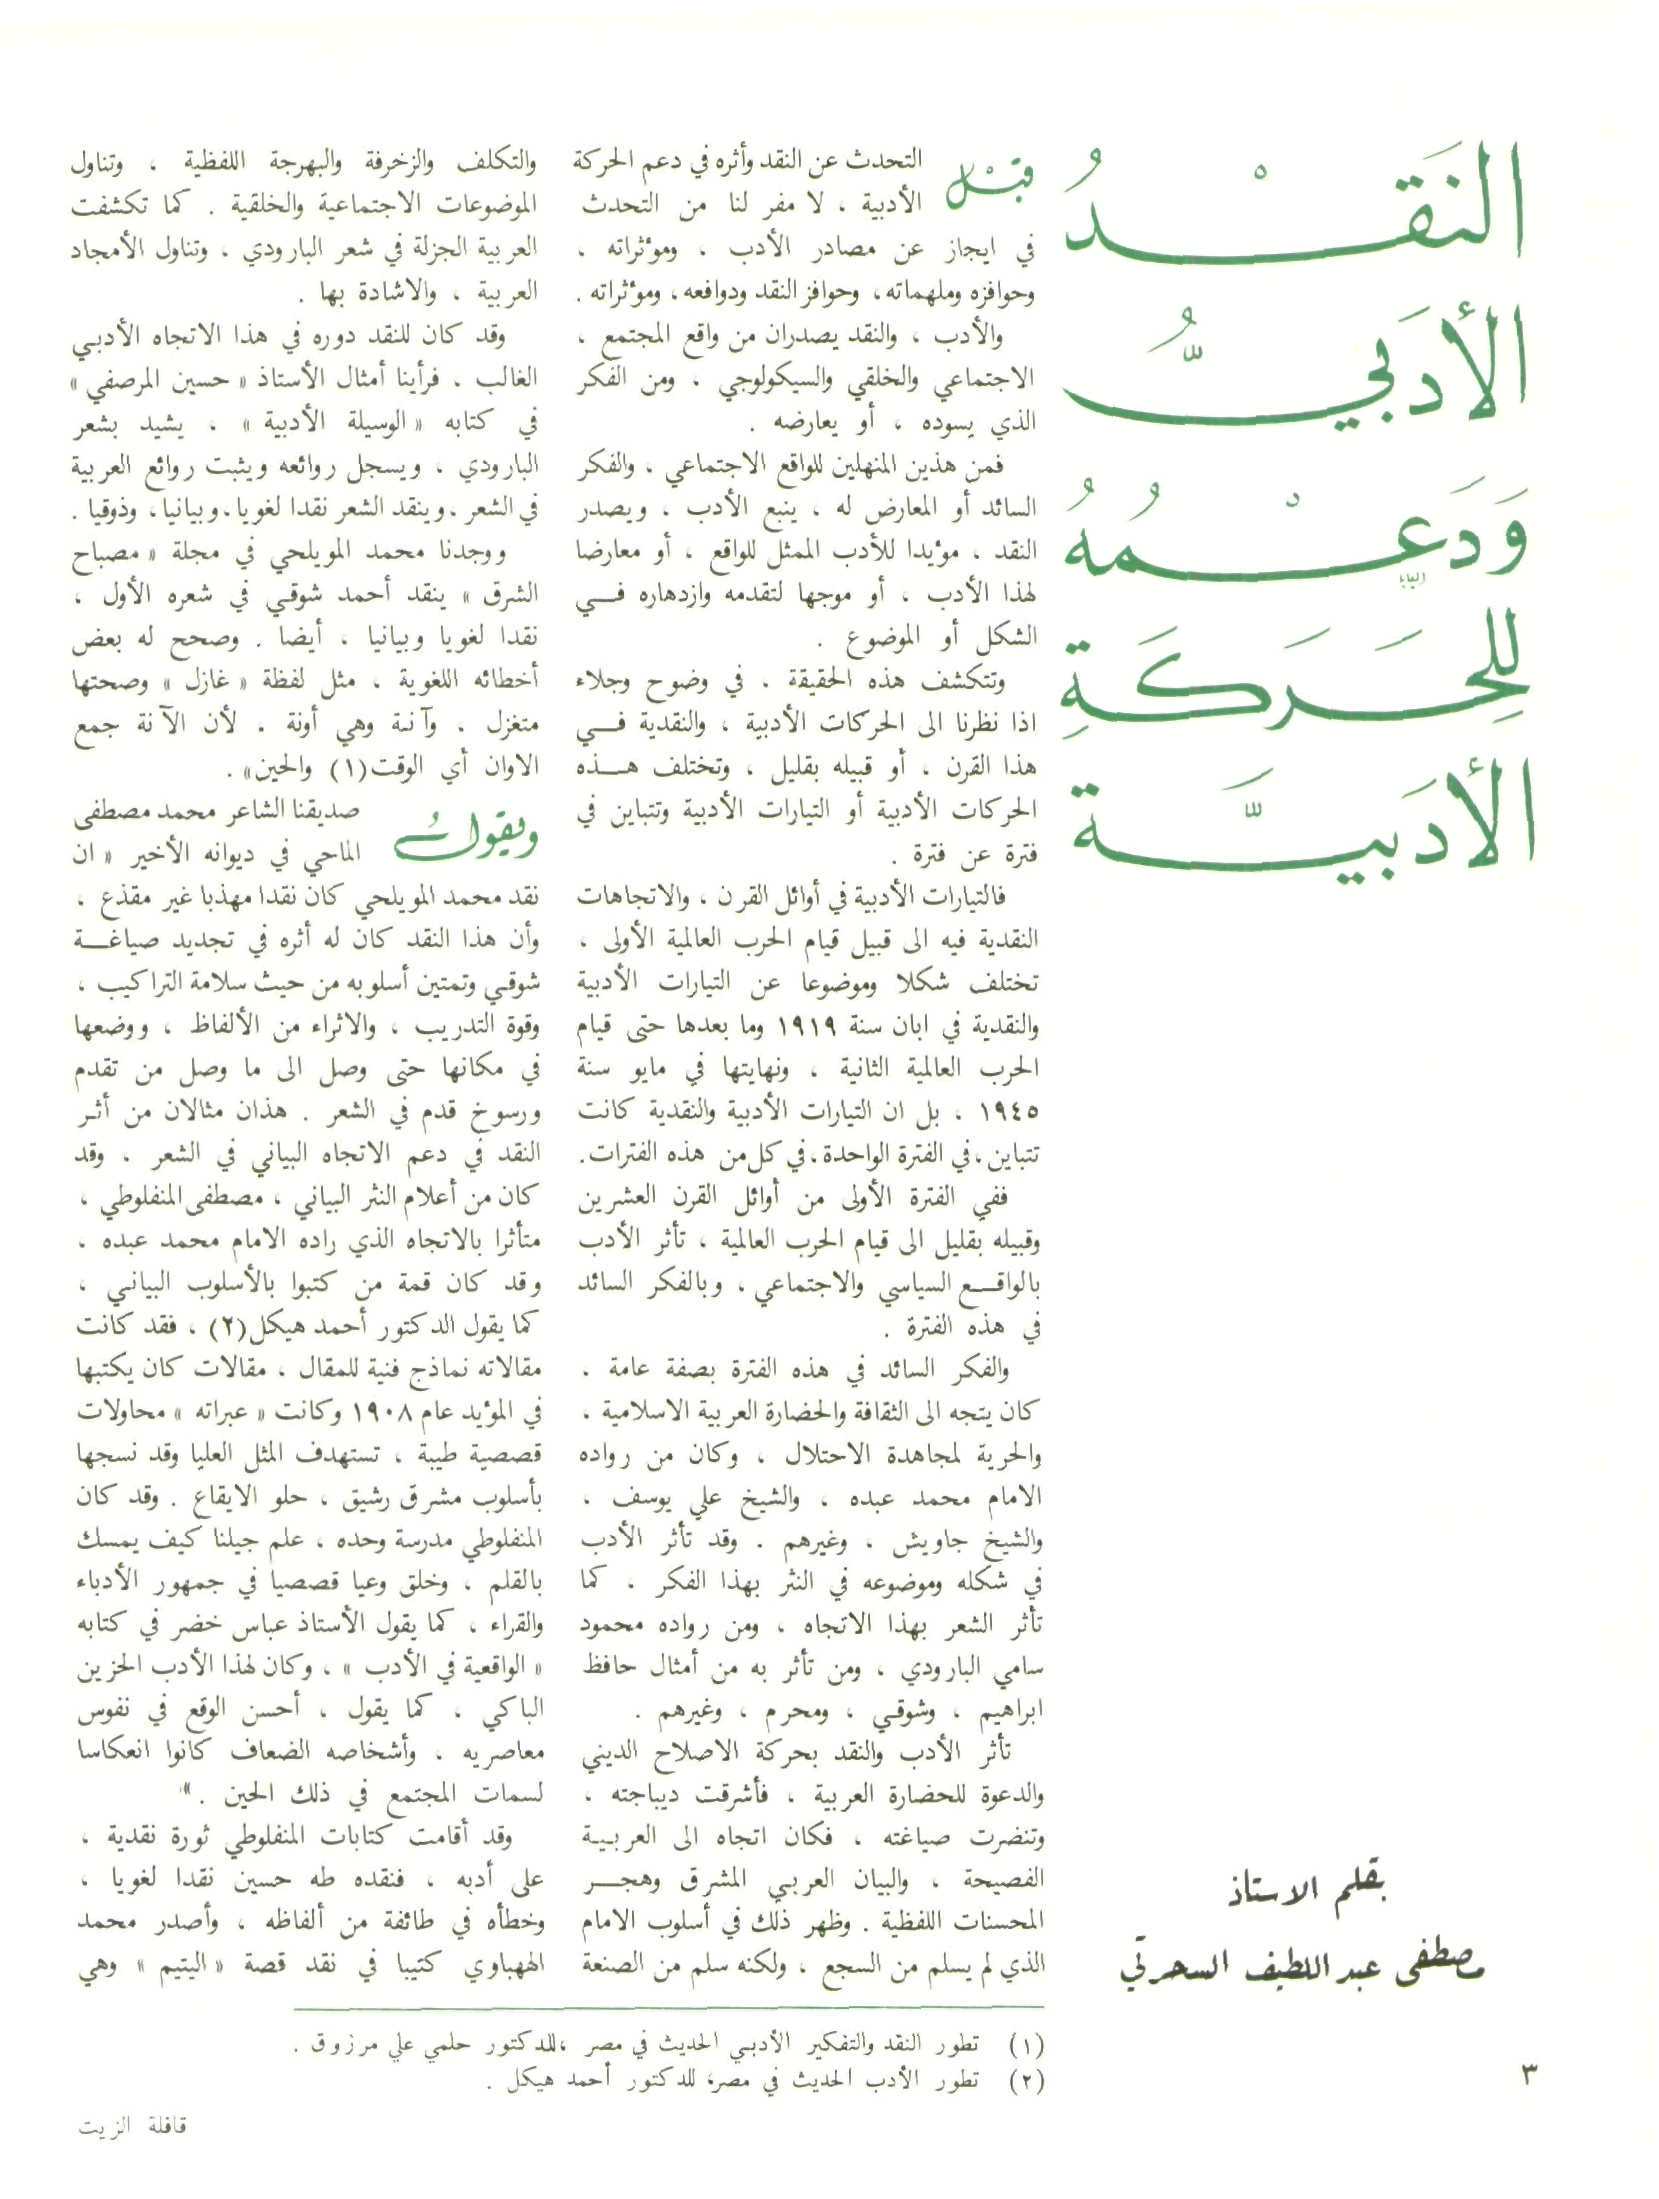 النَقْدُ
الأدَبيُّ
وَدَعْمُهُ
للِحَرَكَةِ
الأدَبيَّة
بقلم الاستاذ
مصطفى عبد اللطيف السحرتي
قبْل التحدث عن النقد وأثره في دعم الحركة
الأدبية ، لا مفر لنا من التحدث
في ايجاز عن مصادر الأدب ، ومؤثراته ،
وحوافزه وملهماته، وحوافز النقد ودوافعه، ومؤثراته .
والأدب ، والنقد يصدران من واقع المجتمع ،
الاجتماعي والخلقي والسيكولوجي ، ومن الفكر
الذي يسوده ، أو يعارضه .
فمن هذين المنهلين للواقع الاجتماعي ، والفكر
السائد أو المعارض له ، ينبع الأدب ، ويصدر
النقد ، مؤيدا للأدب الممثل للواقع ، أو معارضا
لهذا الأدب ، أو موجها لتقدمه وازدهاره فــي
الشكل أو الموضوع .
وتتكشف هذه الحقيقة ، في وضوح وجلاء
اذا نظرنا الى الحركات الأدبية ، والنقدية فــي
هذا القرن ، أو قبيله بقليل ، وتختلف هــذه
الحركات الأدبية أو التيارات الأدبية وتتباين في
فترة عن فترة .
فالتيارات الأدبية في أوائل القرن ، والاتجاهات
النقدية فيه الى قبيل قيام الحرب العالمية الأولى ،
تختلف شكلا وموضوعا عن التيارات الأدبية
والنقدية في ابان سنة ١٩١٩ وما بعدها حتى قيام
الحرب العالمية الثانية ، ونهايتها في مايو سنة
١٩٤٥ ، بل ان التيارات الأدبية والنقدية كانت
تتباين،في الفترة الواحدة،في كل من هذه الفترات.
ففي الفترة الأولى من أوائل القرن العشرين
وقبيله بقليل الى قيام الحرب العالمية ، تأثر الأدب
بالواقــع السياسي والاجتماعي ، وبالفكر السائد
في هذه الفترة .
والفكر السائد في هذه الفترة بصفة عامة ،
كان يتجه الى الثقافة والحضارة العربية الاسلامية ،
والحرية لمجاهدة الاحتلال ، وكان من رواده
الامام محمد عبده ، والشيخ علي يوسف ،
والشيخ جاويش ، وغيرهم . وقد تأثر الأدب
في شكله وموضوعه في النثر بهذا الفكر ، كما
تأثر الشعر بهذا الاتجاه ، ومن رواده محمود
سامي البارودي ، ومن تأثر به من أمثال حافظ
ابراهيم ، وشوقي ، ومحرم ، وغيرهم .
تأثر الأدب والنقد بحركة الاصلاح الديني
والدعوة للحضارة العربية ، فأشرقت ديباجته ،
وتنضرت صياغته ، فكان اتجاه الى العربية
الفصيحة ، والبيان العربي المشرق وهجــر
المحسنات اللفظية . وظهر ذلك في أسلوب الامام
الذي لم يسلم من السجع ، ولكنه سلم من الصنعة
والتكلف والزخرفة والبهرجة اللفظية ، وتناول
الموضوعات الاجتماعية والخلقية . كما تكشفت
العربية الجزلة في شعر البارودي ، وتناول الأمجاد
العربية ، والاشادة بها .
وقد كان للنقد دوره في هذا الاتجاه الأدبي
الغالب ، فرأينا أمثال الأستاذ « حسين المرصفي »
في كتابه « الوسيلة الأدبية » ، يشيد بشعر
البارودي ، ويسجل روائعه ويثبت روائع العربية
في الشعر ،وينقد الشعر نقدا لغويا، وبيانيا، وذوقيا .
ووجدنا محمد المويلحي في مجلة « مصباح
الشرق » ينقد أحمد شوقي في شعره الأول ،
نقدا لغويا وبيانيا ، أيضا . وصحح له بعض
أخطائه اللغوية ، مثل لفظة « غازل » وصحتها
متغزل ، وآنـة وهي أونة ، لأن الآنة جمع
الاوان أي الوقت(١) والحين» .
ويقولُ صديقنا الشاعر محمد مصطفى
الماحي في ديوانه الأخير « ان
نقد محمد المويلحي كان نقدا مهذبا غير مقذع ،
وأن هذا النقد كان له أثره في تجديد صياغــة
شوقي وتمتين أسلوبه من حيث سلامة التراكيب ،
وقوة التدريب ، والاثراء من الألفاظ ، ووضعها
في مكانها حتى وصل الى ما وصل من تقدم
ورسوخ قدم في الشعر . هذان مثالان من أثر
النقد في دعم الاتجاه البياني في الشعر ، وقد
كان من أعلام النثر البياني ، مصطفى المنفلوطي ،
متأثرا بالاتجاه الذي راده الامام محمد عبده ،
وقد كان قمة من كتبوا بالأسلوب البياني ،
كما يقول الدكتور أحمد هيكل(٢) ، فقد كانت
مقالاته نماذج فنية للمقال ، مقالات كان يكتبها
في المؤيد عام ١٩٠٨ وكانت « عبراته » محاولات
قصصية طيبة ، تستهدف المثل العليا وقد نسجها
بأسلوب مشرق رشيق ، حلو الايقاع . وقد كان
المنفلوطي مدرسة وحده ، علم جيلنا كيف يمسك
بالقلم ، وخلق وعيا قصصيا في جمهور الأدباء
والقراء ، كما يقول الأستاذ عباس خضر في كتابه
« الواقعية في الأدب » ، وكان لهذا الأدب الحزين
الباكي ، كما يقول ، أحسن الوقع في نفوس
معاصريه ، وأشخاصه الضعاف كانوا انعكاسا
لسمات المجتمع في ذلك الحين . »
وقد أقامت كتابات المنفلوطي ثورة نقدية ،
على أدبه ، فنقده طه حسين نقدا لغويا ،
وخطأه في طائفة من ألفاظه ، وأصدر محمد
الههباوي كتيبا في نقد قصة « اليتيم » وهي
(١) تطور النقد والتفكير الأدبي الحديث في مصر ،للدكتور حلمي علي مرزوق .
(٢) تطور الأدب الحديث في مصر، للدكتور أحمد هيكل .
٣
قافلة الزيت